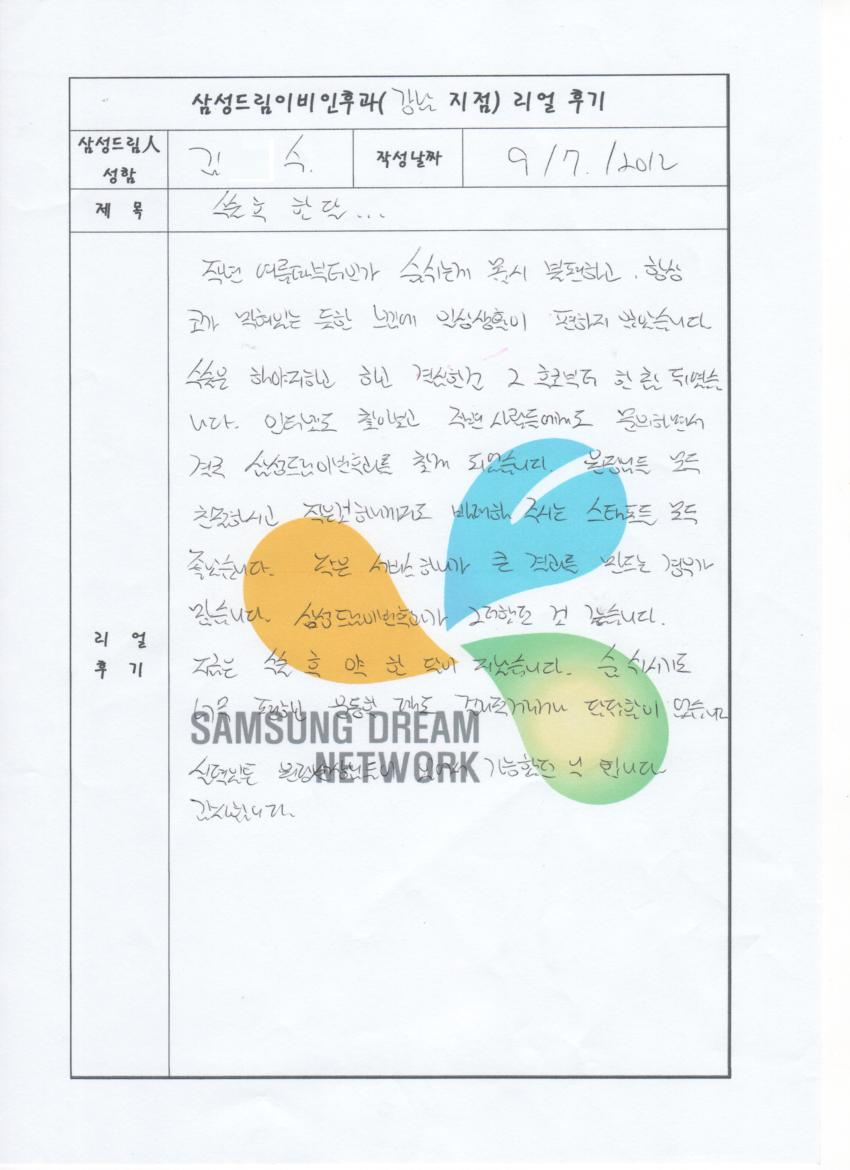 삼성드림이비인후과(강남 지점) 리얼 후기
삼성드림人 성함
김 수.
작성날짜
9/7./2012
제 목
수술 후 한 달...
리 얼 후 기
작년 여름때부터인가 숨쉬는게 몹시 불편하고. 항상
코가 막혀있는 듯한 느낌에 일상생활이 편하지 않았습니다.
수술은 해야지하고 하고 결심한건 그 후로부터 한참 뒤였습
니다. 인터넷도 찾아보고 주변 사람들에게도 문의하면서
결국 삼성드림이비인후과를 찾게 되었습니다. 원장님들 모두
친절하시고 작은것 하나까지도 배려해 주시는 스태프들 모두
좋았습니다. 작은 서비스 하나가 큰 결과를 만드는 경우가
많습니다. 삼성드림이비인후과가 그러한 것 같습니다.
지금은 수술 후 약 한 달이 지났습니다. 숨 쉬시기도
너무 편하고 운동할 때도 답답함이 없습니다
실력있는 원장선생님들이 있어서 가능했던 일 입니다
감사합니다.
SAMSUNG DREAM
NETWORK